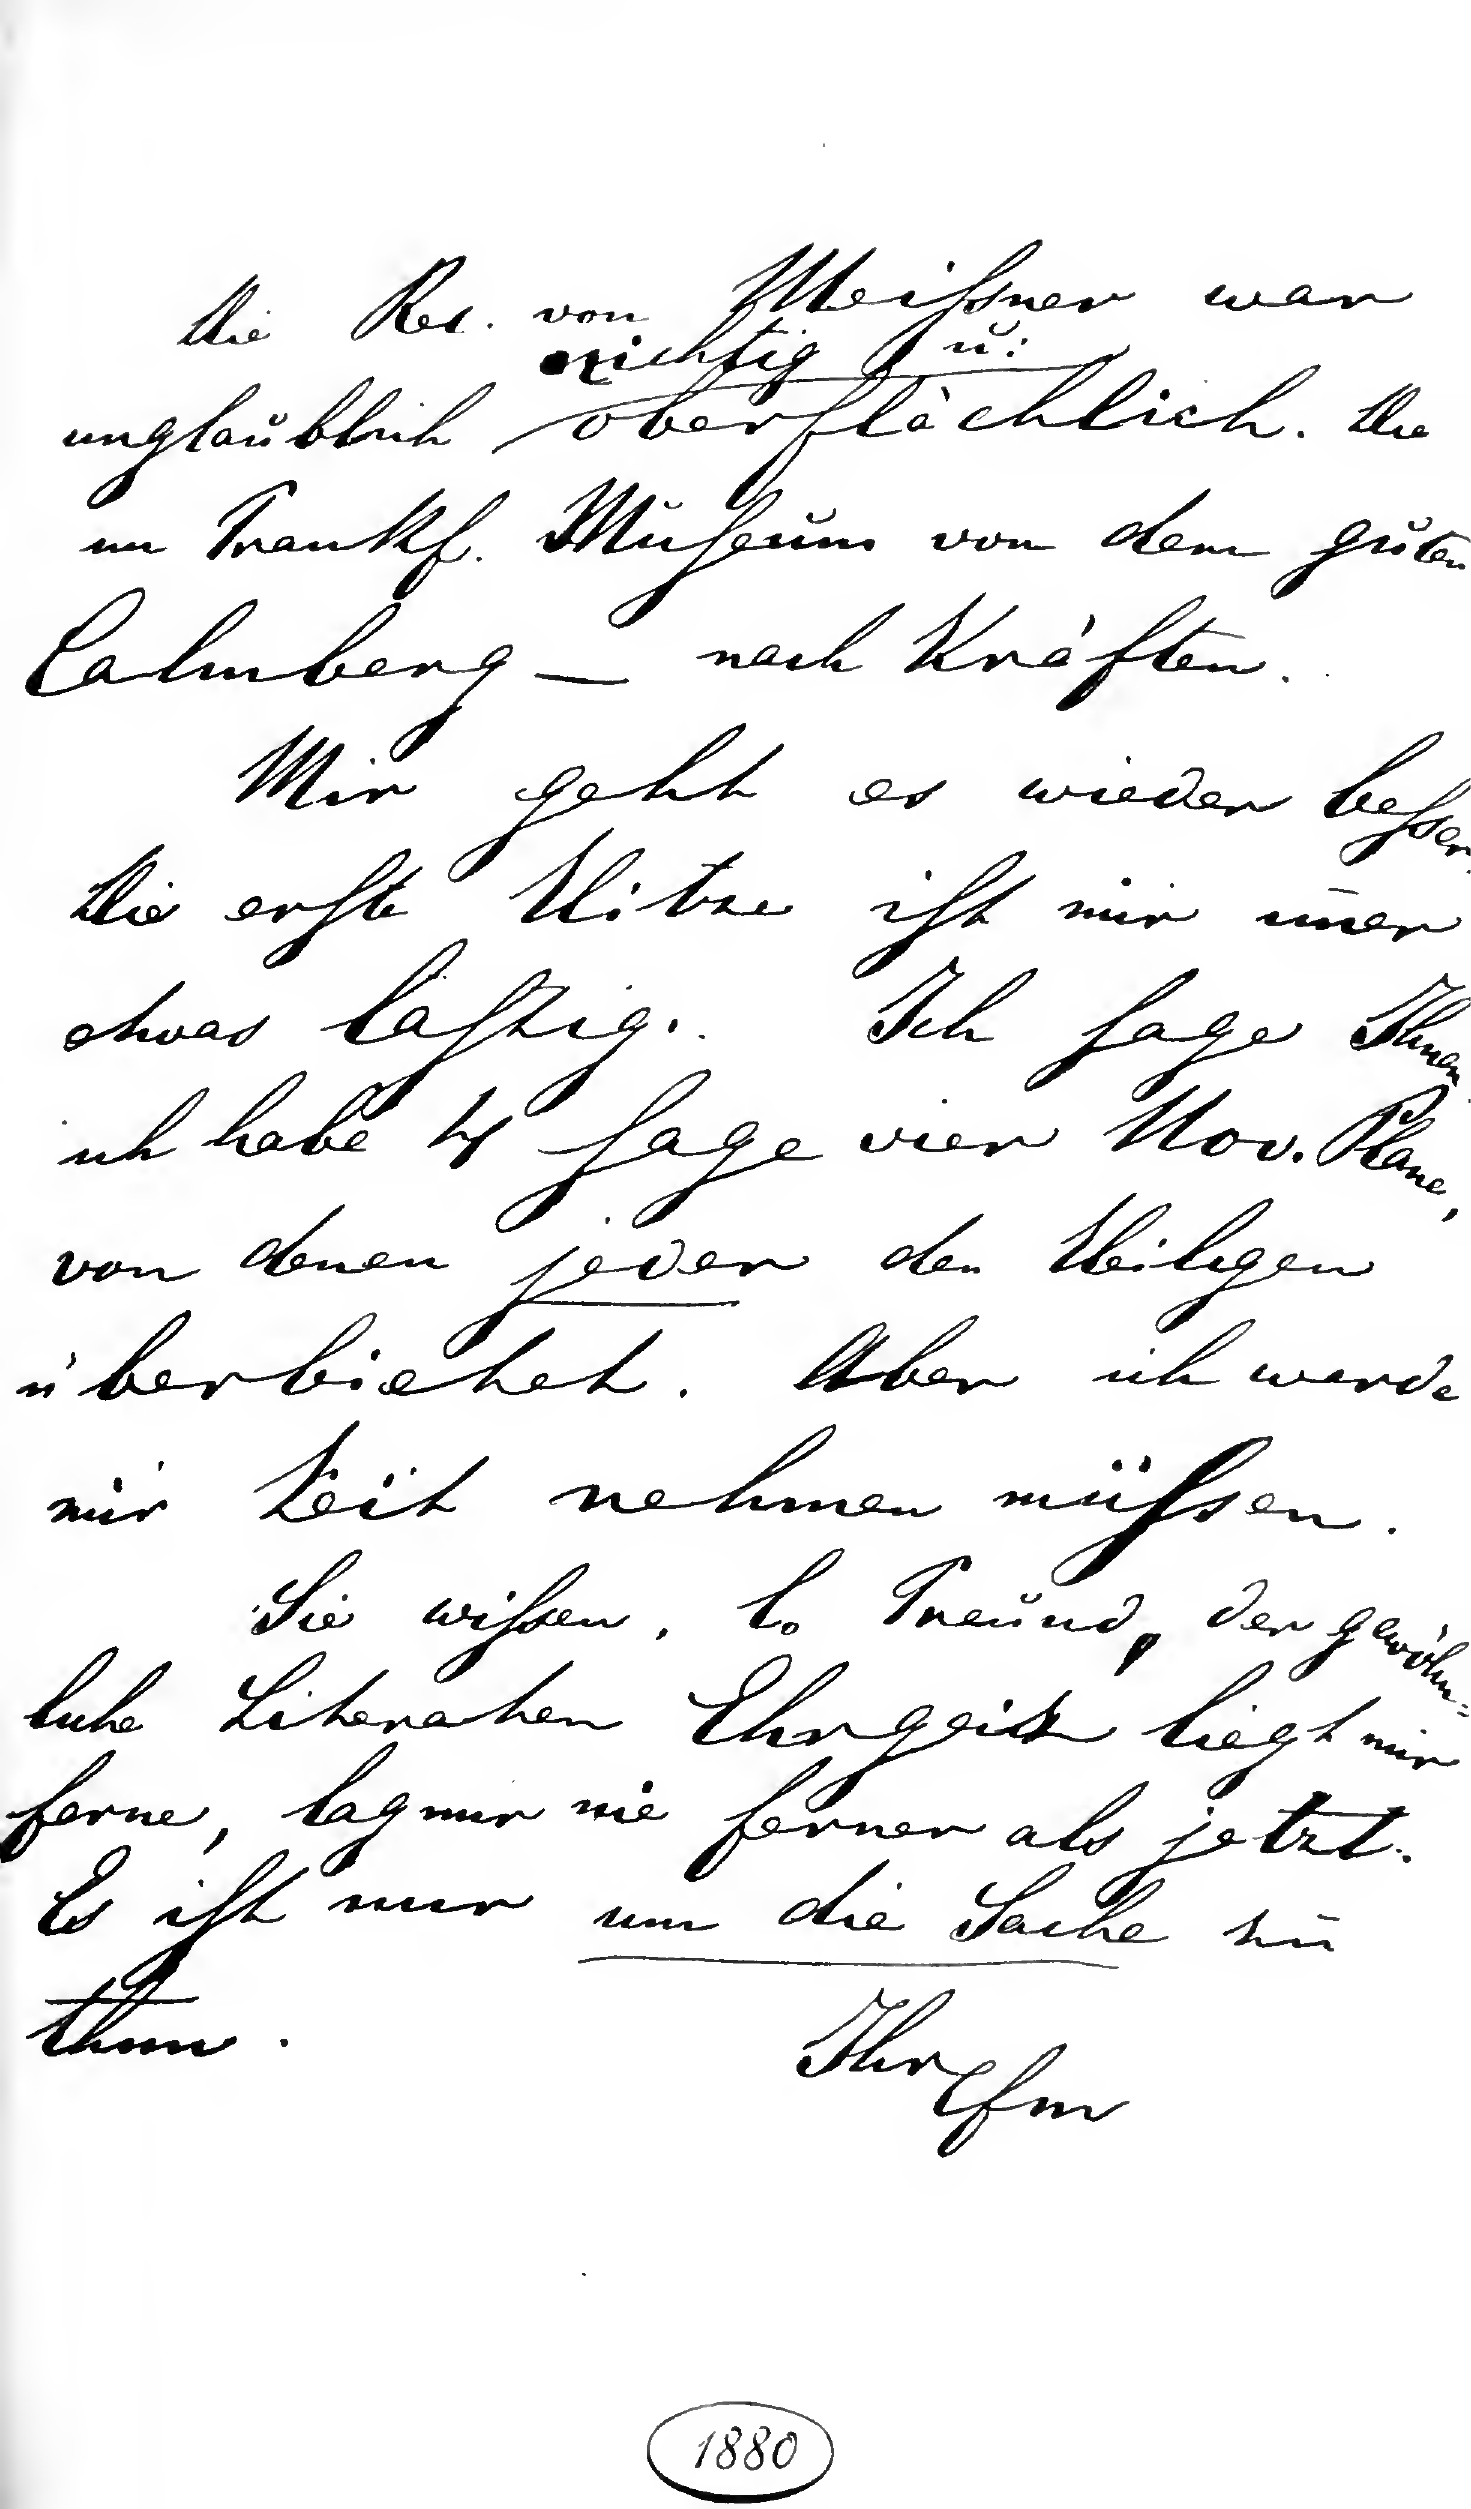 Die Rec. von Meißner war
nichtig u:
unglaublich oberflächlich. Die
im Frankf. Museum von dem guten
Calmberg — nach Kräften.
Mir geht es wieder besser.
Die erste Hitze ist mir im̄er
etwas lästig. Ich sage Ihnen
ich habe 4 sage vier Nov. Pläne,
von denen jeder den Heiligen
überbietet. Aber ich werde
mir Zeit nehmen müssen.
Sie wissen, l. Freund, der gewöhn=
liche Literaten Ehrgeiz liegt mir
ferne, lag mir nie ferner als jetzt.
Es ist nur um die Sache zu
thun.
Ihr CFM
1880